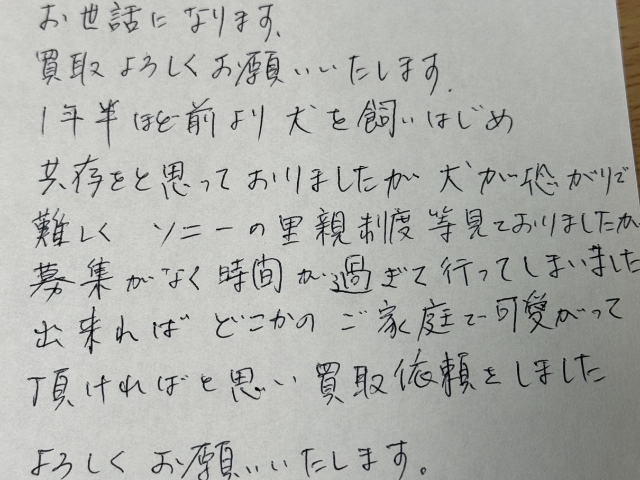 お世話になります.
買取よろしくお願いいたします.
1年半ほど前より犬を飼いはじめ
共存をと思っておりましたが犬が恐がりで
難しくソニーの里親制度等見ておりましたが
募集がなく時間が過ぎて行ってしまいました
出来ればどこかのご家庭で可愛がって
頂ければと思い買取依頼をしました
よろしくお願いいたします。